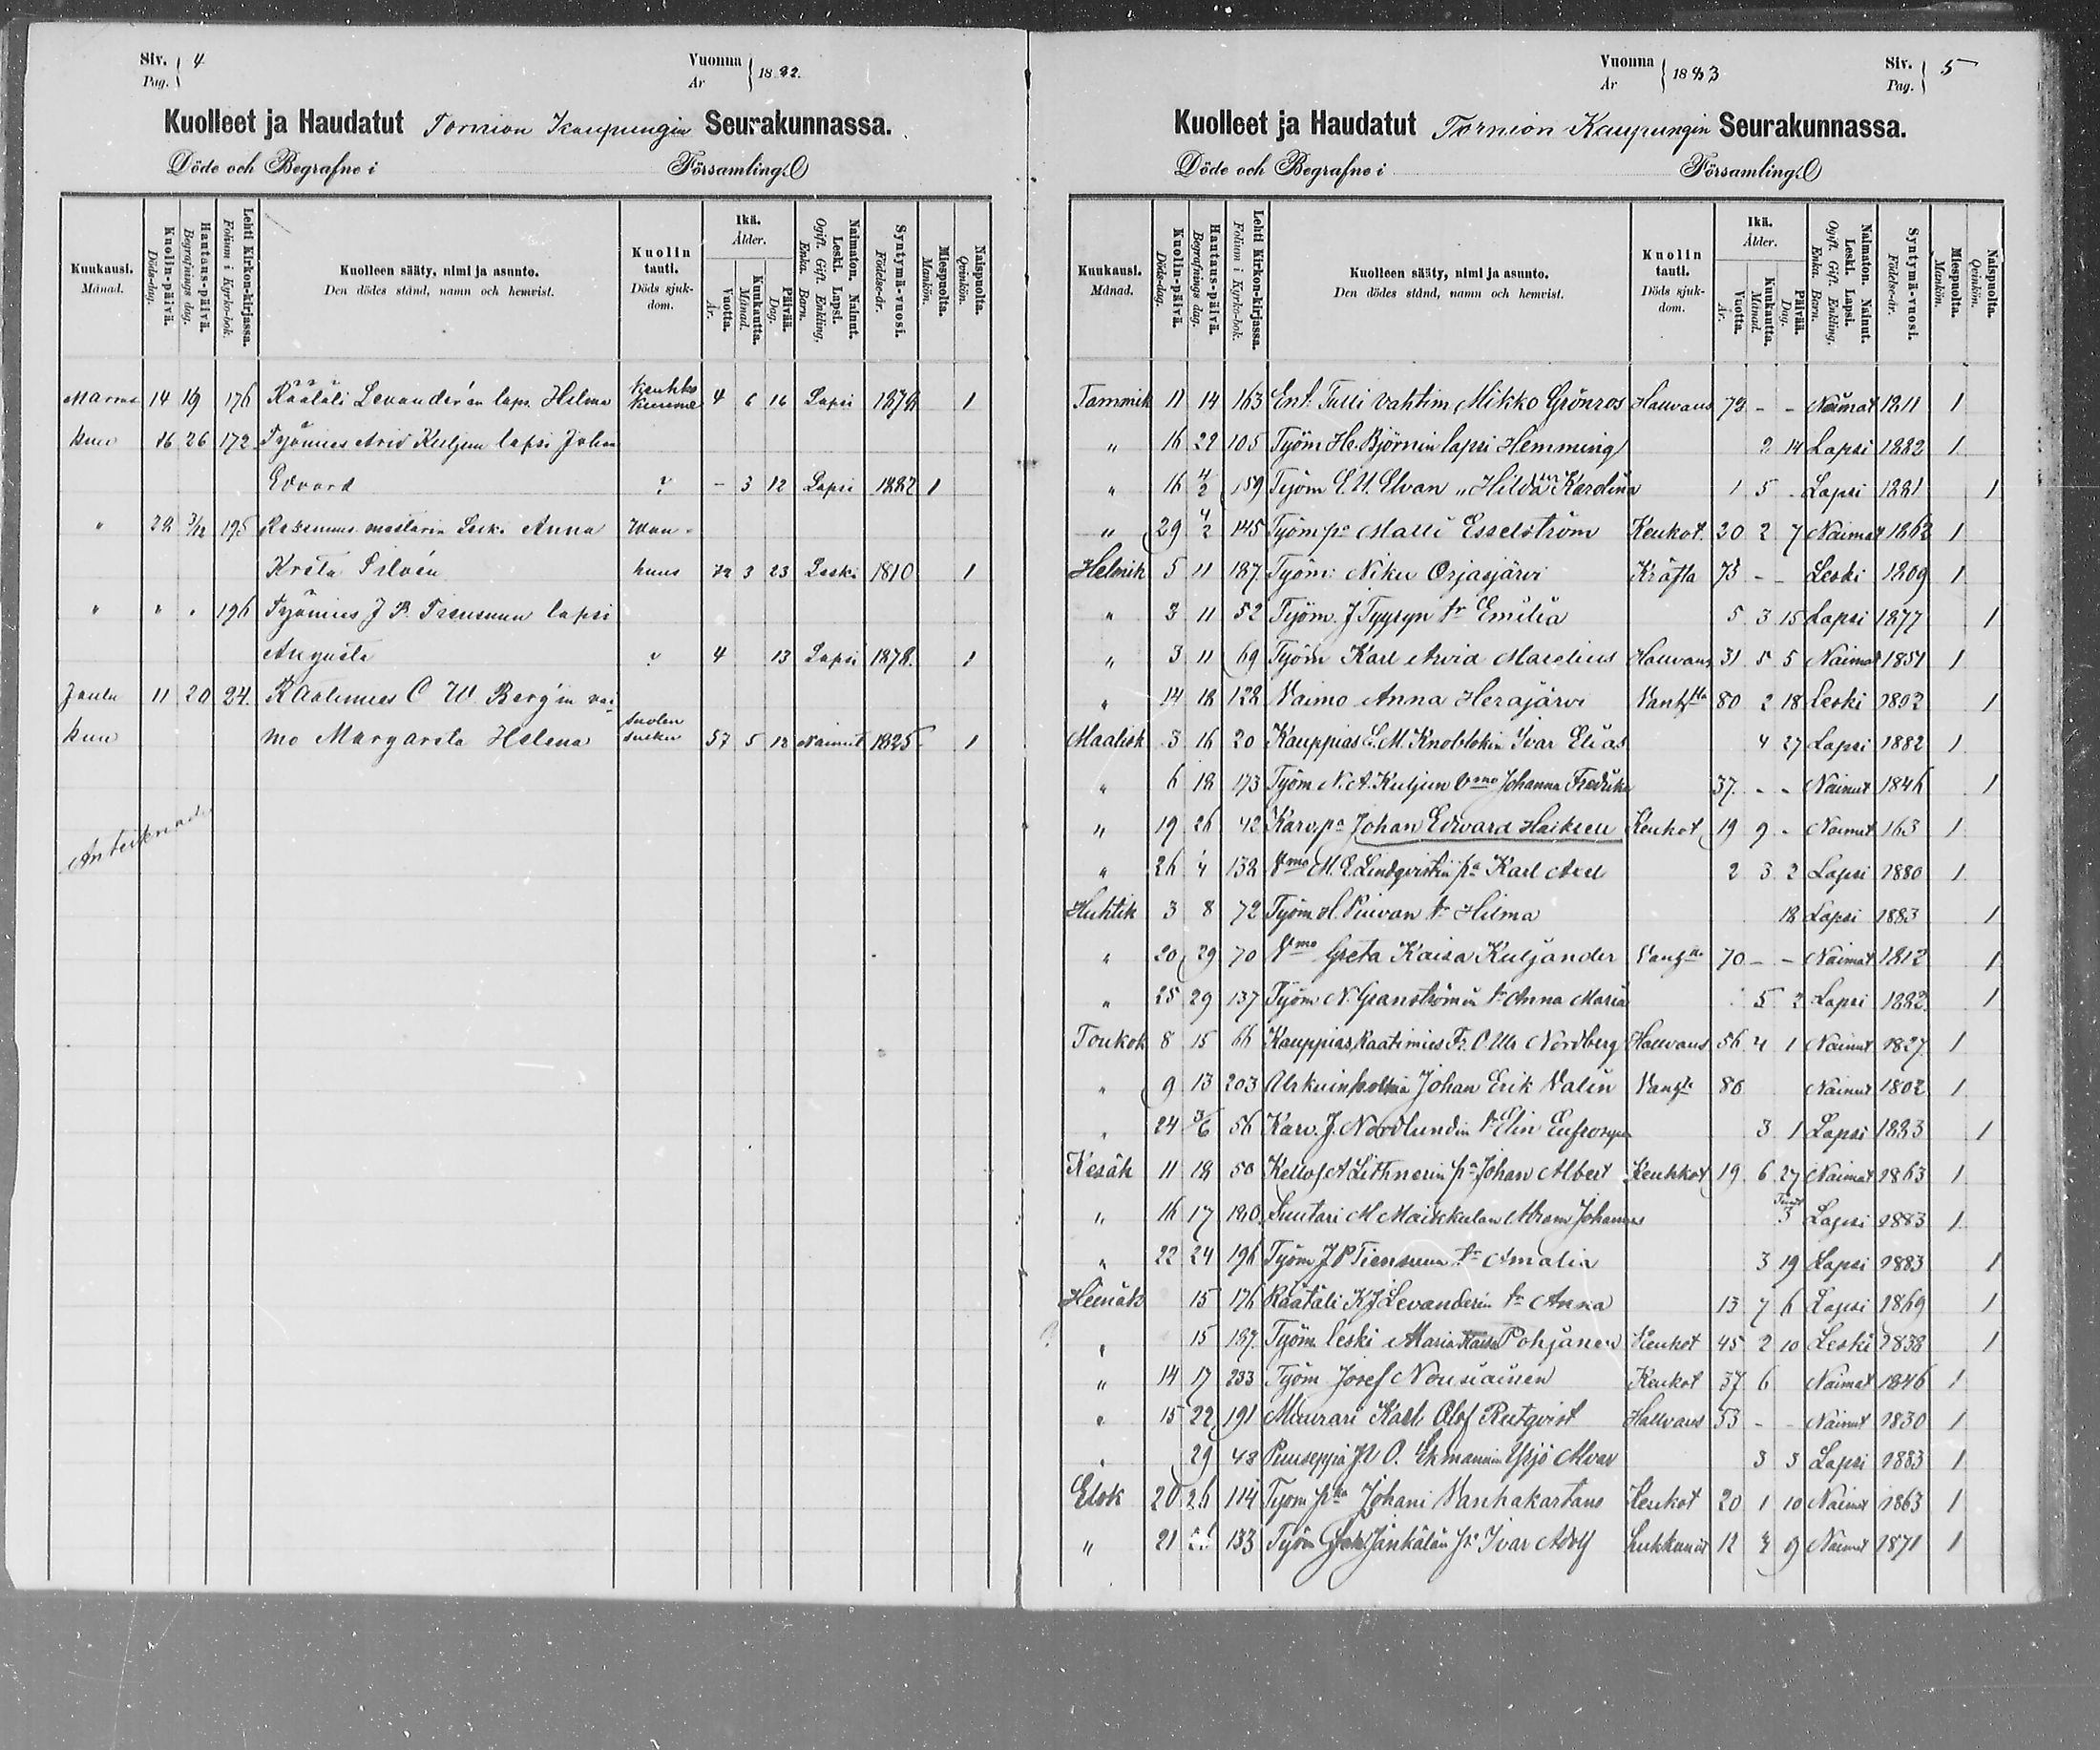 Siv. Pag. 4
Vuonna År 1882.
Kuolleet ja Haudatut Tornion Kaupungin Seurakunnassa.
Döde och Begrafne i Församling.
Kuukausi. Månad.
Kuolin-päivä. Döds-dag.
Hautaus-päivä. Begrafnings dag.
Lehti Kirkon-kirjassa. Folium i Kyrko-bok.
Kuolleen sääty, nimi ja asunto. Den dödes stånd, namn och hemvist.
Kuolin tauti. Döds sjuk-dom.
Ikä. Ålder.
Vuotta. År.
Kuukautta. Månad.
Päivää. Dag.
Naimaton. Nainut. Leski. Lapsi. Ogift. Gift. Enkling, Enka. Barn.
Syntymä-vuosi. Födelse-år.
Miespuolta. Mankön.
Naispuolta. Qvinkön.
Marras 14 19 176 Räätäli Levander'in laps. Hilma 4 6 16 Lapsi 1878 1
kuu 16 26 172 Työmies Arvid Kuljun lapsi Johan
Edvard ? - 3 12 Lapsi 1882 1
" 28 3/12 195 Leski Anna Wan-
Kreta Silvén huus 72 3 23 Leski 1810 1
" " " 196 Työmies J P. Tiensuun lapsi
Augusta ? 4 13 Lapsi 1878. 1
Joulu 11 20 24. Raatimies C W. Berg'in vai-
kuu mo Margareta Helena 57 5 12 Nainut 1825 1
Antecknade
Vuonna År 1883
Siv. Pag. 5
Kuolleet ja Haudatut Tornion Kaupungin Seurakunnassa.
Döde och Begrafne i Församling.
Kuukausi. Månad.
Kuolin-päivä. Döds-dag.
Hautaus-päivä. Begrafnings dag.
Lehti Kirkon-kirjassa. Folium i Kyrko-bok.
Kuolleen sääty, nimi ja asunto. Den dödes stånd, namn och hemvist.
Kuolin tauti. Döds sjuk-dom.
Ikä. Ålder.
Vuotta. År.
Kuukautta. Månad.
Päivää. Dag.
Naimaton. Nainut. Leski. Lapsi. Ogift. Gift. Enkling, Enka. Barn.
Syntymä-vuosi. Födelse-år.
Miespuolta. Mankön.
Naispuolta. Qvinkön.
Tammik 11 14 163 Ent. Tulli vahtim. Mikko Grönros Halvaus 72 - - 1811 1
" 16 22 105 Työm H. Björnin lapsi Hemming 2 14 Lapsi 1882 1
" 16 4/2 159 Työm E. U. Elvan " Hilda Karolina 1 5 - Lapsi 1881 1
" 29 4/2 145 Työm pa Matti Esselström Keukot. 20 2 7 Naimat 1862 1
Helmik 5 11 187 Työm: Niku Orjasjärvi Kräfta 73 - - Leski 1809 1
" 3 11 52 Työm. J Tyyryn tr Emilia 5 3 15 Lapsi 1877 1
" 3 11 69 Työm Karl Arvid Marelius Halvaus 31 5 5 Naimat 1851 1
" 14 18 128 Vaimo Anna Herajärvi 80 2 18 Leski 1802 1
Maalisk 3 16 20 Kauppias L. M. Knoblokin Ivar Elias 4 27 Lapsi 1882 1
" 6 18 173 Työm N. A. Kuljun Vmo Johanna Fredrika 37. - - Nainut 1846 1
" 19 26 42 Karv. pa Johan Edward Haiksen Keuhot 19 9 - 163 1
" 26 4 132 Vmo M. E. Lindqvistin pa Karl Axel 2 3 2 Lapsi 1880 1
Huhtik 3 8 72 Työm H. Piivan tr Hilma 18 Lapsi 1883 1
" 20 29 70 Vmo Greta Kaisa Kuljander 70 - - Naimat 1812 1
" 25 29 137 Työm N. Granströmin tr Anna Maria 5 2 Lapsi 1882 1
Toukok 8 15 66 Kauppias, Raatimies Fr. O. Ulr Nordberg Halvaus 56 4 1 Nainut 1827 1
" 9 13 203 Johan Erik Valin 80 Nainut 1802 1
" 24 3/6 56 Karv. J. Nordlundin tr Elin 3 1 Lapsi 1883 1
Kesäk 11 18 50 A Lithnerin pa Johan Albert Keuhkot 19 6 27 Naimat 1863 1
" 16 17 Suutari M Maikkulan Abram Johannes 3 Lapsi 1883 1
" 22 24 196 Työm J P Tiensuun tr Amalia 3 19 Lapsi 1883 1
Heinäk 15 176 Räätäli K J Levanderin tr Anna 13 7 6 Lapsi 1869 1
" 15 187 Työm leski Maria Kaisa Pohjanen Keukot 45 2 10 Leski 1838 1
" 14 17 233 Työm Josef Nousiainen Keukot 37 6 Naimat 1846 1
" 15 22 191 Muurari Karl Olof Rutqvist Halvaus 53 - - Nainut 1830 1
" 29 48 Puuseppä O. Ekmannin Yrjö Alvar 3 3 Lapsi 1883 1
Elok 20 26 114 Työm pka Johani Vanhakartano Keukot 20 1 10 1863 1
" 21 133 Työm Jankälän pa Ivar Adolf 12 4 9 1871 1